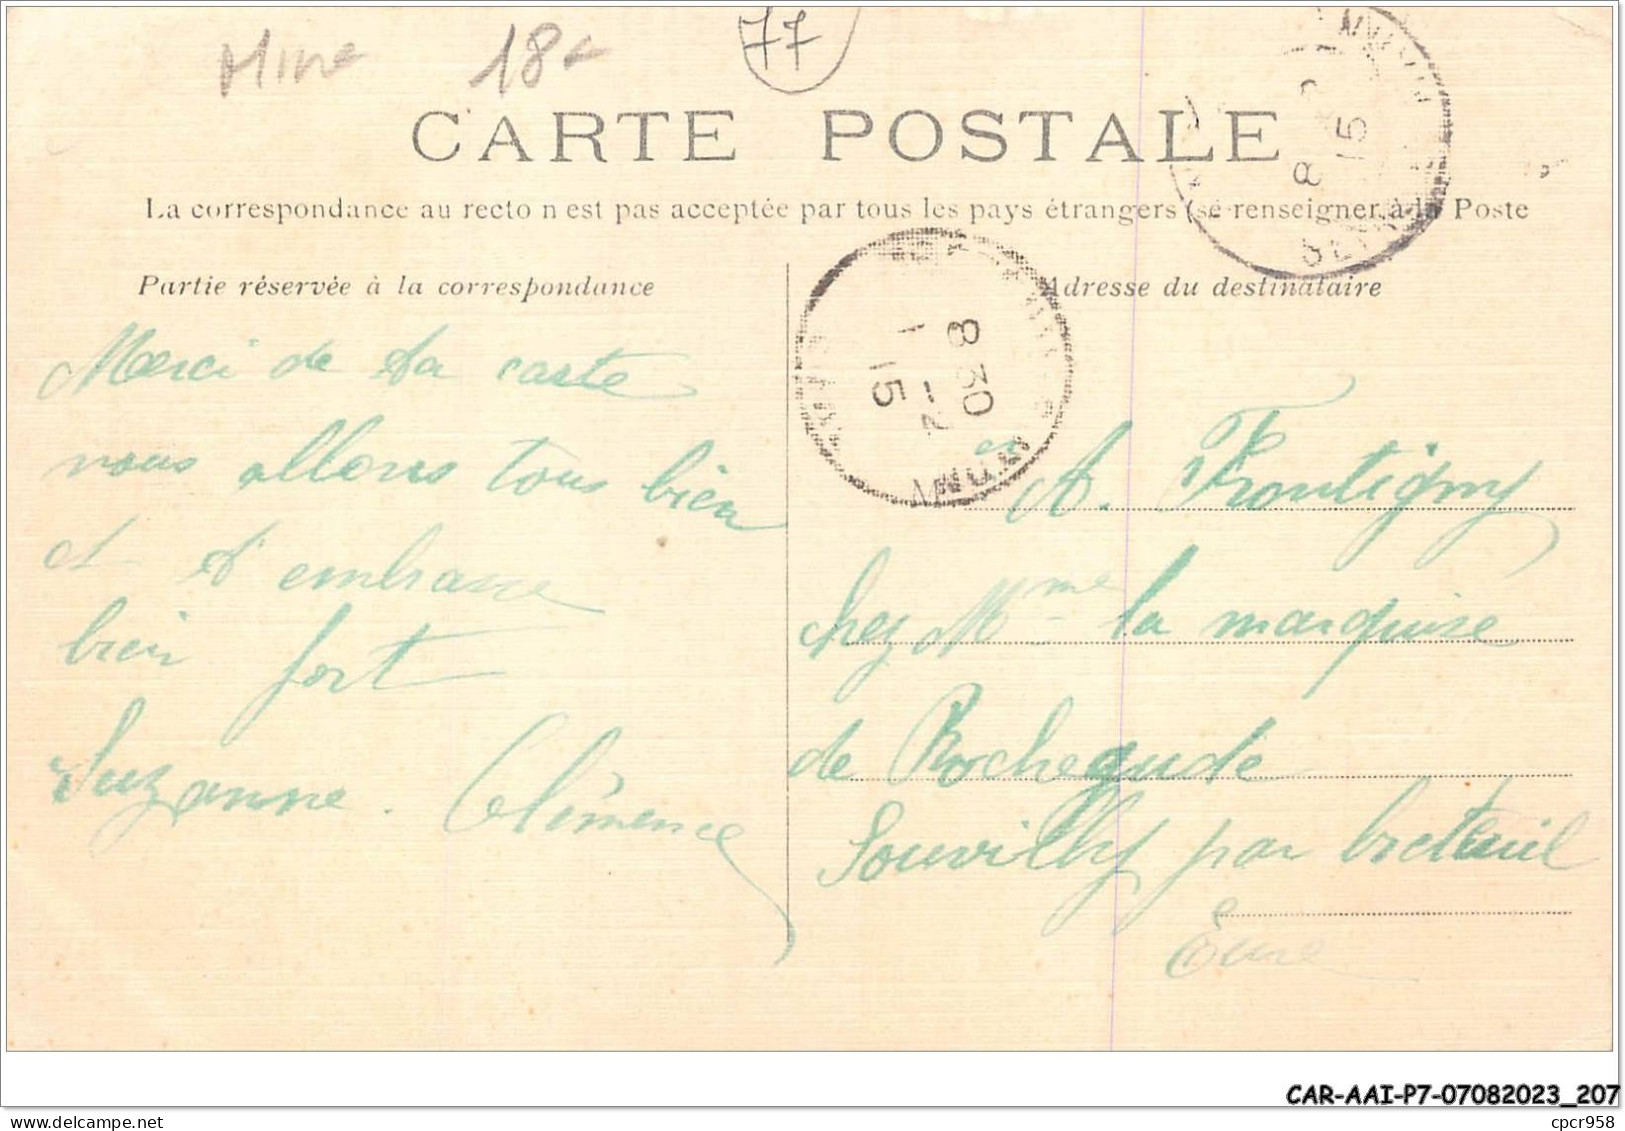 Mine 18e
77
CARTE POSTALE
La correspondance au recto n est pas acceptée par tous les pays étrangers (se renseigner à la Poste
Partie réservée à la correspondance
Adresse du destinataire
8 30
1 -2
15
NMUR
8
15
Merci de ta carte
nous allons tous bien
et t'embrasse
bien fort
Suzanne. Clémence
A. Frontigny
chez Mme la marquise
de Rochegude
Souvilly par breteuil
Eure
CAR-AAI-P7-07082023_207
cpcr958